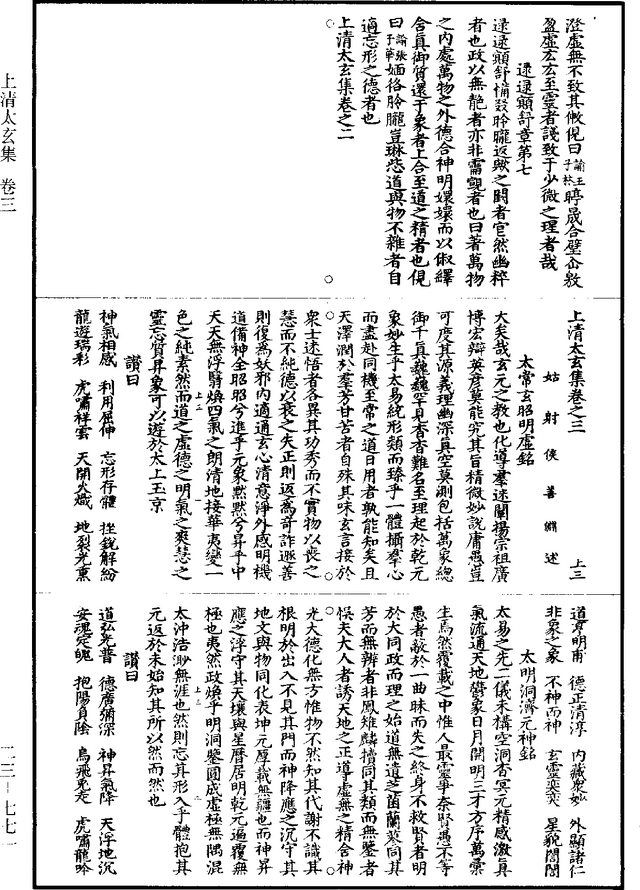 上清太玄集 卷三
澄虛無不致其微儁曰
諭王子林
盈虛玄玄至靈者議致于少微之理者哉
者也政以無艷者亦非需覬者也曰著萬物
之内處萬物之外德合神明嬛嬛而以俶繹
含真御質還于象者上合至道之精者也俔
適忘形之德者也
上清太玄集卷之二
上清太玄集卷之三
上三
姑射侯善淵述
太常玄昭明虛銘
大矣哉玄元之教也化導羣迷闡揚宗祖廣
博宏辯英彥莫能窮其旨精微妙說庸愚豈
可度其源義理幽深真空莫測包括萬象總
御千真巍巍罕見杳杳難名至理起於乾元
象妙生乎太易統形類而臻乎一體攝羣心
而盡赴同機至常之道日用者孰能知矣且
天澤潤於羣芳甘苦者自殊其味玄言接於
衆士迷悟者各異其功秀而不實物以喪之
慧而不純德以衰之失正則返爲奇詐遯善
則復爲妖邪内適通玄心清意淨外感明機
道備神全昭昭兮進乎元象默默兮昇乎中
天天無浮翳煥四氣之朗清地接華夷變一
色之純素然而道之虛德之明氣之爽慧之
靈忘質昇象可以遊於太上玉京
讚曰
神氣相感 利用屈伸 忘形存體 挫銳解紛
龍遊瑞彩 虎嘯祥雲 天開火熾 地裂光熏
道傳明甫 德正清淳 内藏衆妙 外顯諸仁
非象之象 不神而神 玄靈奕奕 星貌誾誾
太明洞濟元神銘
太易之先二儀未構空洞杳冥元精感激真
氣流通天地釁象日月開明三才方序萬彙
生焉然覆載之中惟人最靈爭奈賢愚不等
愚者蔽於一曲昧而失之終身不救賢者明
於大同政而理之始道無遺芝茵蘭蕙同其
芳而無辨者非鳳雉麟犢同其類而無鑒者
悞夫大人者誘天地之正導虛無之精含神
光大德化無方惟物不然知其代謝不識其
根明於出入不見其門而神降應之沉守其
地文與物同化表坤元厚載無疆也而神昇
應之浮守其天壤與星曆居明乾元遍覆無
極也夷然政煥乎明洞鑒圓成虛極無隅混
太沖浩渺無涯也然則忘其形入乎體抱其
元返於未始知其所以然而然也
讚曰
道弘光普 德廣彌深 神昇氣降 天浮地沉
安魂定魄 抱陽負陰 烏飛兔走 虎嘯龍吟
二三－七七一